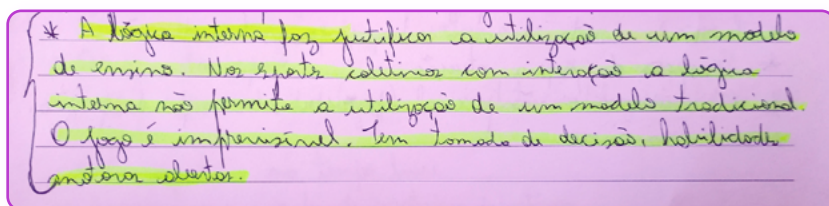 * A lógica interna faz jutificar a utilização de um modelo
de ensino. Nos esportes coletivos com interação a lógica
interna não permite a utilização de um modelo tradicional.
O jogo é imprevisível. Tem tomada de decisão, habilidades
motoras abertas.